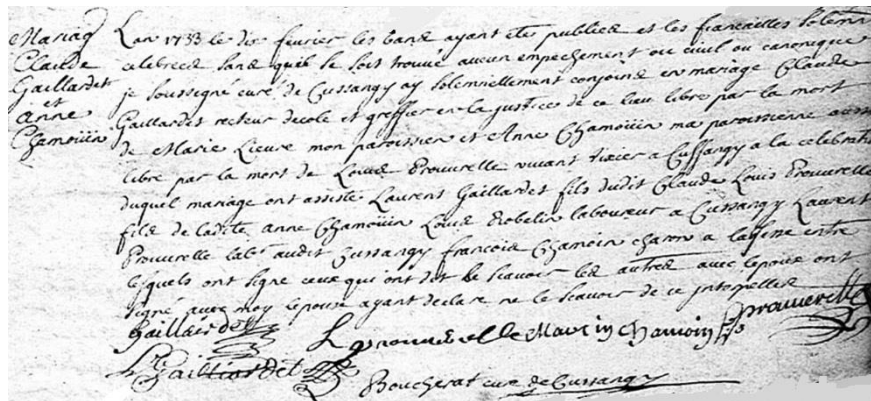 Mariag
Claude
Gaillardet
et
Anne
Chamoüin
L an 1733 le dix fevrier les band ayant etes publied et les fiancailles solemn
celebreed sand quil se soit trouvé aucun empechement ou civil ou canonique
je soussigné curé de Cussangy ay solemnellement conjoind en mariage Claude
Gaillardet recteur decole et greffier en la justice de ce lieu libre par la mort
de Marie Lieure mon paroissien et Anne Chamoüin ma paroissienne aussi
libre par la mort de Louid Prouverelle vivant tixier a Cussangy a la celebrati
duquel mariage ont assisté Laurent Gaillardet fils dudit Claude Louis Prouverelle
fild de ladite anne Chamoüin Louid Robelin laboureur a Cussangy Laurent
Prouverelle lab^r audit Cussangy francoid Chamoin charon a entre
lesquels ont signé ceux qui ont dit le scavoir led autred avec lepoux ont
signé avec moy lepouse ayant declare ne le scavoir de ce interpellee
Gaillardet
L prouverelle Martin Chamoin prouverelle
L Gailliardet
Boucherat curé de Cussangy